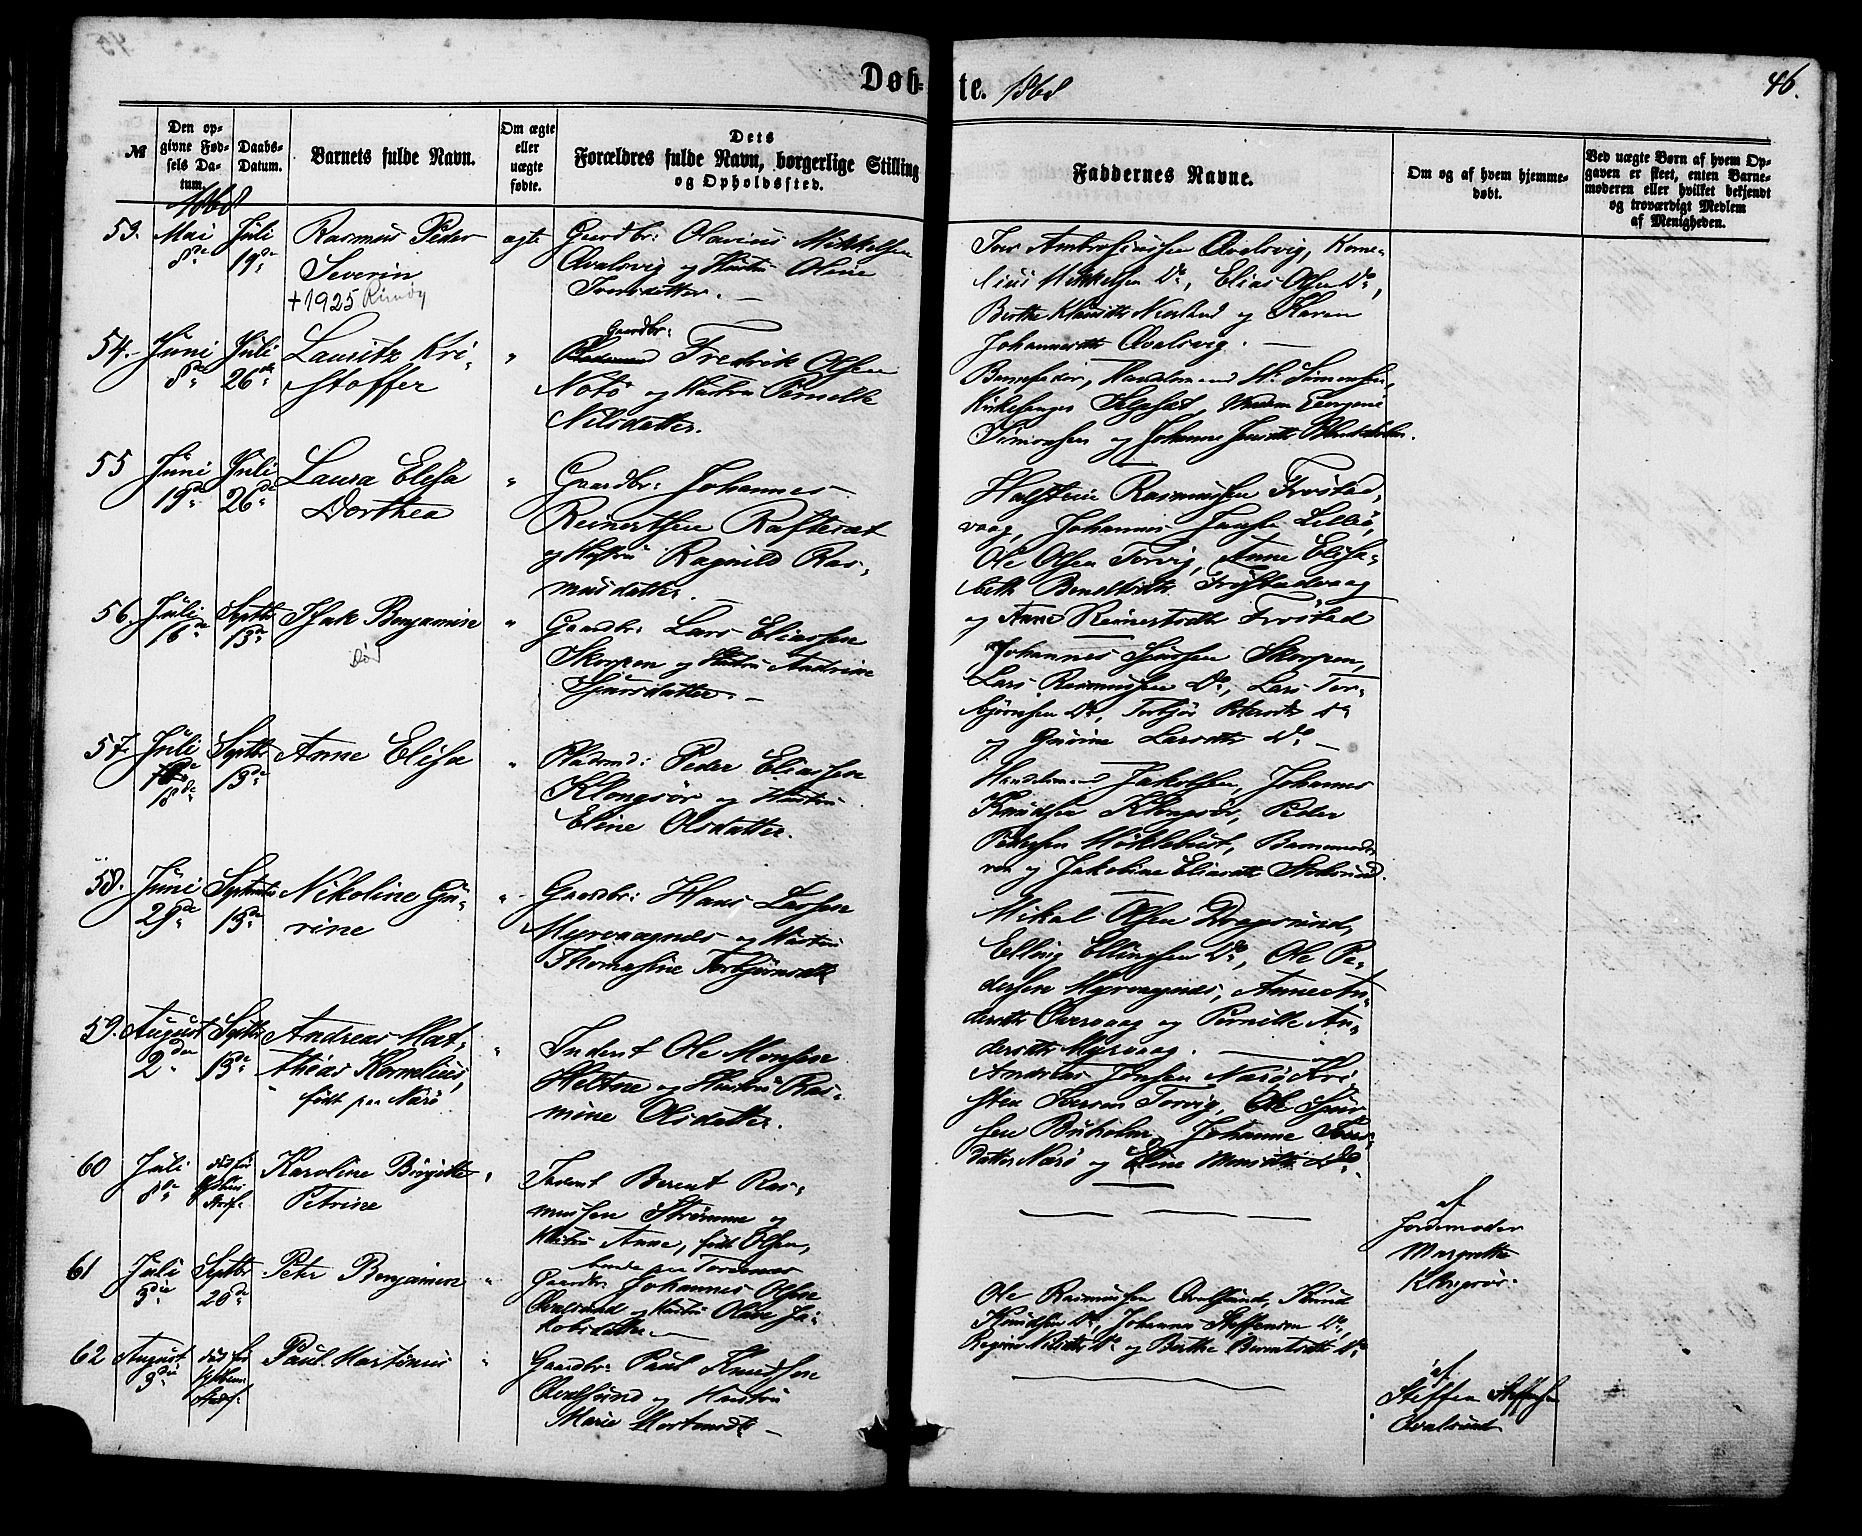 Døb-
te. 1868
46.
№
Den op-
givne Fød-
sels Da-
tum.
Daabs-
Datum.
Barnets fulde Navn.
Om ægte
eller
uægte
fødte.
Dets
Forældres fulde Navn, borgerlige Stilling
og Opholdssted.
Faddernes Navne.
Om og af hvem hjemme-
døbt.
Ved uægte Børn af hvem Op-
gaven er skeet, enten Barne-
moderen eller hvilket bekjendt
og troværdigt Medlem
af Menigheden.
1868
53.
Mai
8de
Juli
19de
Rasmus Peder
Severin
+1925 Rimøy
ægte
Gaardbr: Olavius Mikkelsen
Qvalsvig og Hustru Oline
Iversdatter. —
Iver Ambrosiussen Qvalsvig, Korne-
lius Mikkelsen Do, Elias Olsen Do,
Berthe og Karen
Johannesdtr Qvalsvig. —
54.
Juni
8de
Juli
26de
Lauritz Kri-
stoffer
"
Gaardbr:
Fredrik Olsen
Notø og Hustru Pernille
Nilsdatter.
Barnefader, Handelsmand Simonsen,
Kirkesanger Madam
Simonsen og Johanne
55
Juni
19de
Juli
26de
Laura Elisa
Dorthea
"
Gaardbr: Johannes
Reinertsen Rafteset
og Hustru Ragnild Ras-
musdatter.
Halstein Rasmussen Frøstad-
vaag, Johannes Lillø,
Ole Olsen Torvig, Anne Elisa-
beth Frøstadvaag
og Anne Reinertsdtr Frøstad
56.
Juli
16de
Septbr
13de
Isak Benjamin
død
"
Gaardbr: Lars Eliassen
Skorpen og Hustru Andrine
Sjursdatter. —
Johannes Sjursen Skorpen,
Lars Rasmussen Do, Lars Tor-
bjørnsen Do, Do
og Gurine Larsdtr Do —
57.
Juli
18de
Septbr
13de
Anne Elisa
"
Pladsmd: Peder Eliassen
Klongsør og Hustru
Eline Olsdatter.
Handelsmand Jakobsen, Johannes
Knudsen Klongsør, Peder
Pedersen Møklebust, Barnemode-
ren og Jakobine Eliasdtr
58.
Juni
29de
Septembr
13de
Nikoline Gu-
rine
"
Gaardbr: Hans Larsen
Myrvaagnæs og Hustru
Thomasine Torbjørnsdtr
Mikal Olsen Dragsund,
Elling Ellingsen Do, Ole Pe-
dersen Myrvaagnæs, Anne An-
dersdtr og Pernille An-
dersdtr Myrvaag. —
59.
August
2den
Septbr
13de
Andreas Mat-
thias Kornelius,
født paa Nærø
"
Inderst Ole Monsen
og Hustru Ras-
mine Olsdatter.
Andreas Jonsen Nærø, Kri-
sten Iversen Torvig, Ole Sjur-
sen Buholm, Johanne Iver-
datter Nærø og Eline Do.
60
Juli
8de
død før
Karoline Birgitte
Petrine
"
Inderst Berent Ras-
mussen Strømme og
Hustru Anne, født Olsen,
af
Jordemoder
Margrethe
Klongsør.
61
Juli
3die
Septbr
20de
Peter Benjamin
"
Gaardbr: Johannes Olsen
Qvalsund og Hustru Oline Ja-
kobsdatter —
Ole Rasmussen Qvalsund, Knud
Knudsen Do, Johannes Steffensen Do,
Regine Nilsdtr Do og Berthe Berntsdtr Do
62
August
3die
død før
Paul Martinus
"
Gaardbr: Paul Knudsen
Qvalsund og Hustru
Marie Mortensdtr —
af
Steffen Steffensen
Qvalsund